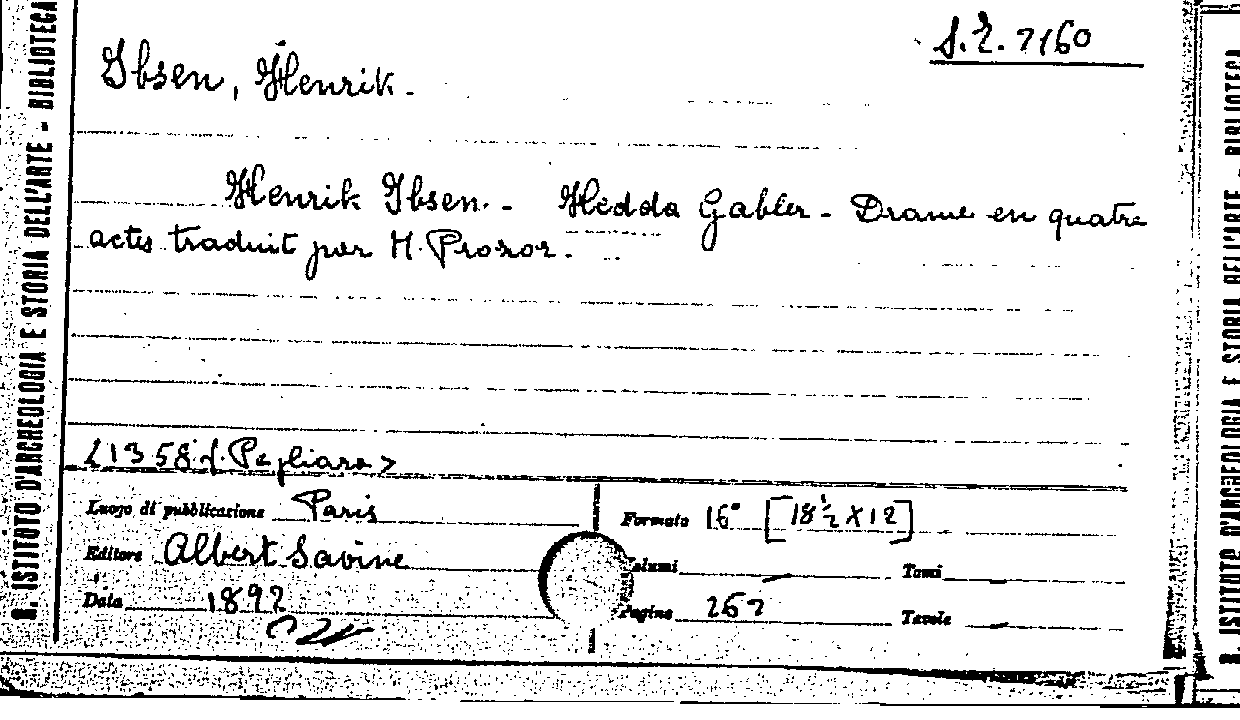 S.I. 7160
Ibsen, Henrik.
Henrik Ibsen. - Hedda Gabler - Drame en quatre
actes traduit par M. Prozor.
R. ISTITUTO D'ARCHEOLOGIA E STORIA DELL'ARTE - BIBLIOTECA
<1358 f. Pagliara>
Luogo di pubblicazione Paris
Formato 16° [18½ X 12]
Editore Albert Savine
Volumi — Tomi —
Data 1892
Pagine 267 Tavole —
R. ISTITUTO D'ARCHEOLOGIA E STORIA DELL'ARTE - BIBLIOTECA